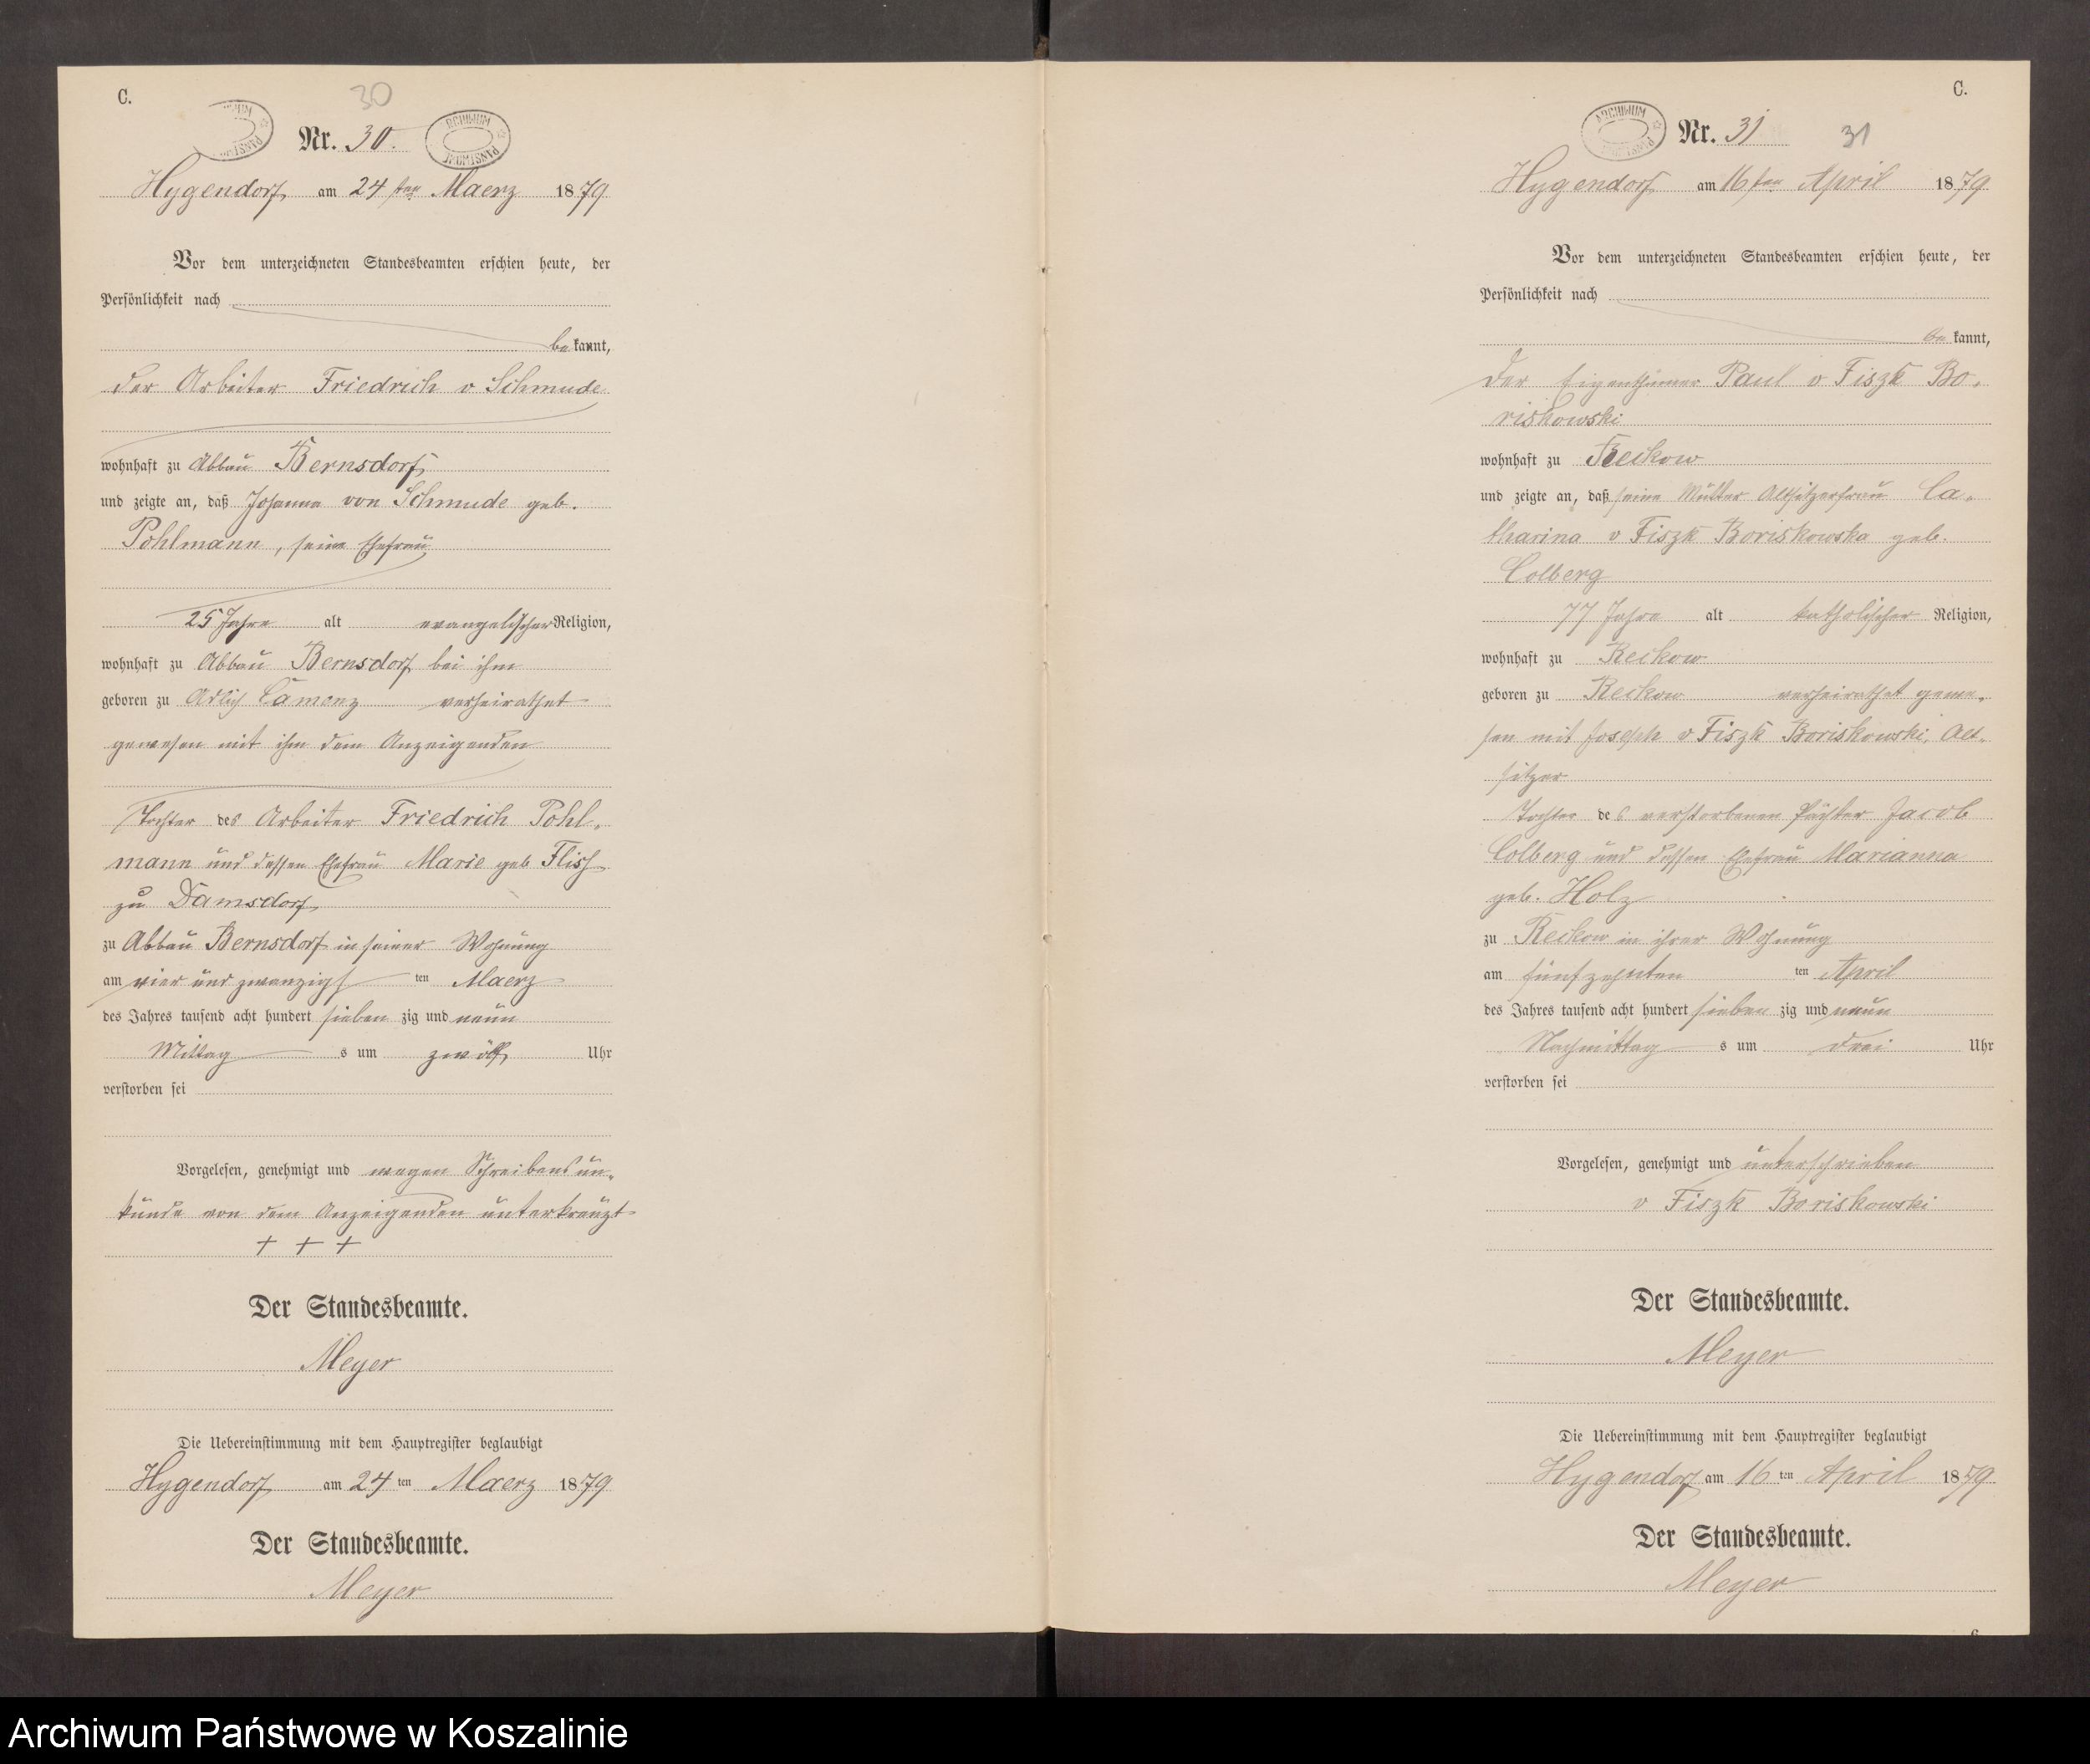 C.
30
Nr. 30.
ARCHIWUM PAŃSTWOWE
Hygendorf am 24ten Maerz 1879
Vor dem unterzeichneten Standesbeamten erschien heute, der
Persönlichkeit nach
bekannt,
der Arbeiter Friedrich v Schmude
wohnhaft zu Abbau Bernsdorf
und zeigte an, daß Johanna von Schmude geb.
Pohlmann, seine Ehefrau
25 Jahre alt evangelischer Religion,
wohnhaft zu Abbau Bernsdorf bei ihm
geboren zu Adlich Camenz verheirathet
gewesen mit ihm dem Anzeigenden
Tochter des Arbeiter Friedrich Pohl-
mann und dessen Ehefrau Marie geb Flisch
zu Damsdorf
zu Abbau Bernsdorf in seiner Wohnung
am vier und zwanzigsten Maerz
des Jahres tausend acht hundert siebenzig und neun
Mittags um zwölf Uhr
verstorben sei
Vorgelesen, genehmigt und wegen Schreibensun-
kunde von dem Anzeigenden unterkreuzt
+ + +
Der Standesbeamte.
Meyer
Die Uebereinstimmung mit dem Hauptregister beglaubigt
Hygendorf am 24ten Maerz 1879
Der Standesbeamte.
Meyer
C.
ARCHIWUM PAŃSTWOWE
Nr. 31
31
Hygendorf am 16ten April 1879
Vor dem unterzeichneten Standesbeamten erschien heute, der
Persönlichkeit nach
bekannt,
der Eigenthümer Paul v Fiszk Bo-
riskowski
wohnhaft zu Reckow
und zeigte an, daß seine Mutter Altsitzerfrau Ca-
tharina v Fiszk Boriskowska geb.
Colberg
77 Jahre alt katholischer Religion,
wohnhaft zu Reckow
geboren zu Reckow verheirathet gewe-
sen mit Joseph v Fiszk Boriskowski, Alt-
sitzer
Tochter des verstorbenen Pächter Jacob
Colberg und dessen Ehefrau Marianna
geb. Holz
zu Reckow in ihrer Wohnung
am fünfzehnten ten April
des Jahres tausend acht hundert siebenzig und neun
Nachmittags um drei Uhr
verstorben sei
Vorgelesen, genehmigt und unterschrieben
v Fiszk Boriskowski
Der Standesbeamte.
Meyer
Die Uebereinstimmung mit dem Hauptregister beglaubigt
Hygendorf am 16ten April 1879
Der Standesbeamte.
Meyer
Archiwum Państwowe w Koszalinie